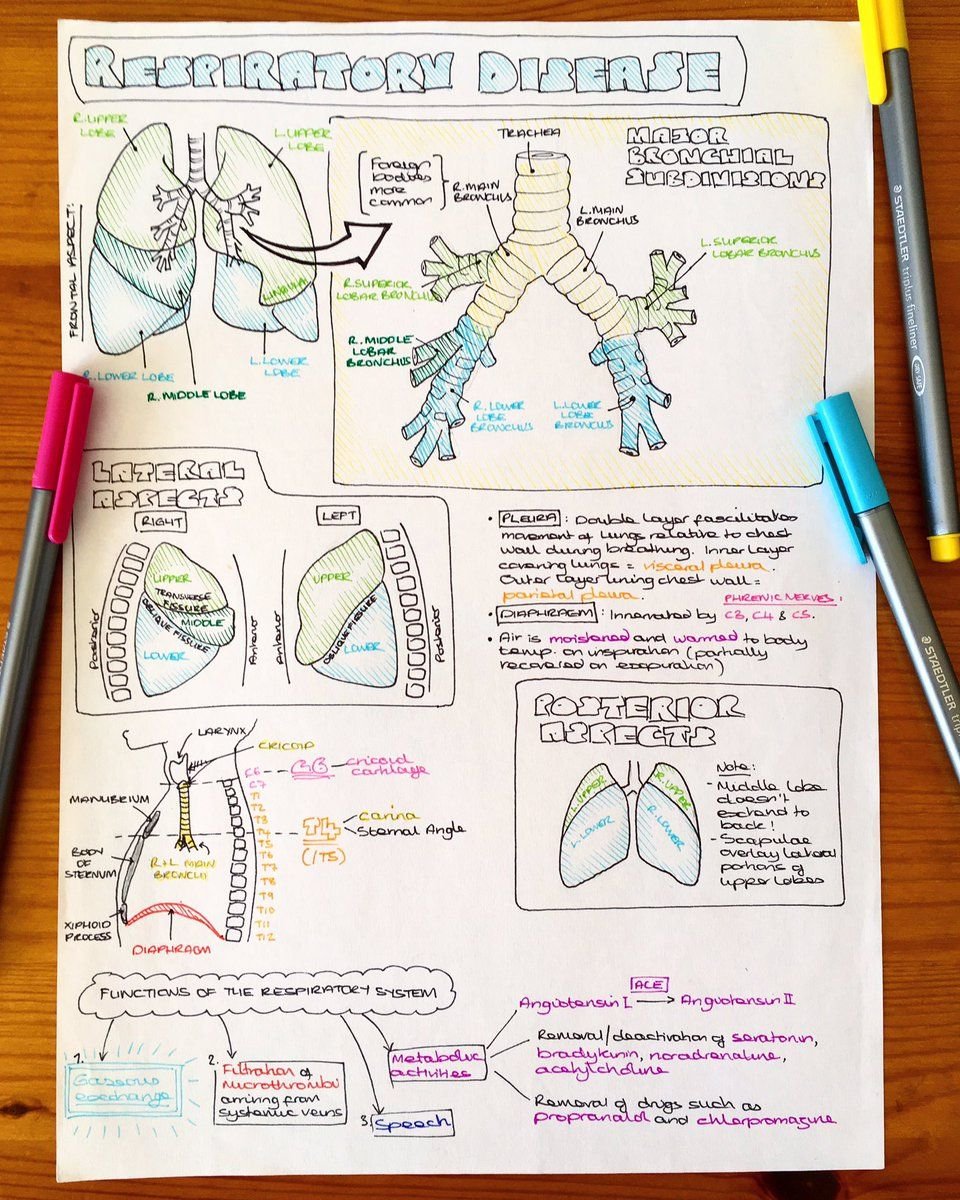 RESPIRATORY DISEASE
R. UPPER
LOBE
L. UPPER
LOBE
FRONTAL ASPECT:
LINGULA
R. LOWER LOBE
R. MIDDLE LOBE
L. LOWER
LOBE
MAJOR
BRONCHIAL
SUBDIVISIONS
TRACHEA
Foreign
bodies
more
common
R. MAIN
BRONCHUS
L. MAIN
BRONCHUS
L. SUPERIOR
LOBAR BRONCHUS
R. SUPERIOR
LOBAR BRONCHUS
R. MIDDLE
LOBAR
BRONCHUS
R. LOWER
LOBE
BRONCHUS
L. LOWER
LOBE
BRONCHUS
LATERAL
ASPECTS
RIGHT
LEFT
UPPER
TRANSVERSE
FISSURE
MIDDLE
OBLIQUE FISSURE
LOWER
Posterior
Anterior
Anterior
UPPER
OBLIQUE FISSURE
LOWER
Posterior
• PLEURA: Double layer fascilitates
movement of lungs relative to chest
wall during breathing. Inner layer
covering lungs = visceral pleura.
Outer layer lining chest wall =
parietal pleura.
PHRENIC NERVES:
• DIAPHRAGM: Innervated by C3, C4 & C5.
• Air is moistened and warmed to body
temp. on inspiration (partially
recovered on expiration)
POSTERIOR
ASPECTS
L. UPPER
R. UPPER
L. LOWER
R. LOWER
Note:
- Middle lobe
doesn't
extend to
back!
- Scapulae
overlay lateral
portions of
upper lobes
LARYNX
CRICOID
C6 -- C6 - cricoid
cartilage
C7
T1
T2
T3
T4
T5
T6
T7
T8
T9
T10
T11
T12
T4
(/T5)
carina
Sternal Angle
MANUBRIUM
BODY
OF
STERNUM
R+L MAIN
BRONCHI
XIPHOID
PROCESS
DIAPHRAGM
FUNCTIONS OF THE RESPIRATORY SYSTEM
1.
Gaseous
exchange
2.
Filtration of
microthrombi
arriving from
systemic veins
3. Speech
Metabolic
activities
ACE
Angiotensin I → Angiotensin II
Removal/deactivation of seratonin,
bradykinin, noradrenaline,
acetylcholine
Removal of drugs such as
propranalol and chlorpromazine
STAEDTLER triplus fineliner
DRY SAFE
STAEDTLER trip